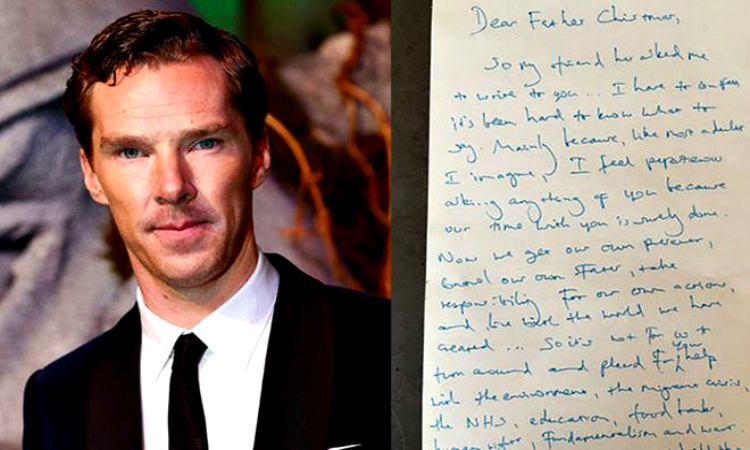 Dear Father Christmas,
So my friend has asked me
to write to you ... I have to confess
it's been hard to know what to
say. Mainly because, like most adults
I imagine, I feel
asking anything of you because
our time with you is surely done.
Now we get our own presents,
our own, take
responsibility for our own actions,
and live with the world we have
created ... So it's not for us to
turn around and plead for your help
with the environment, the migrant crisis,
the NHS, education, food banks,
human rights, fundamentalism and war.